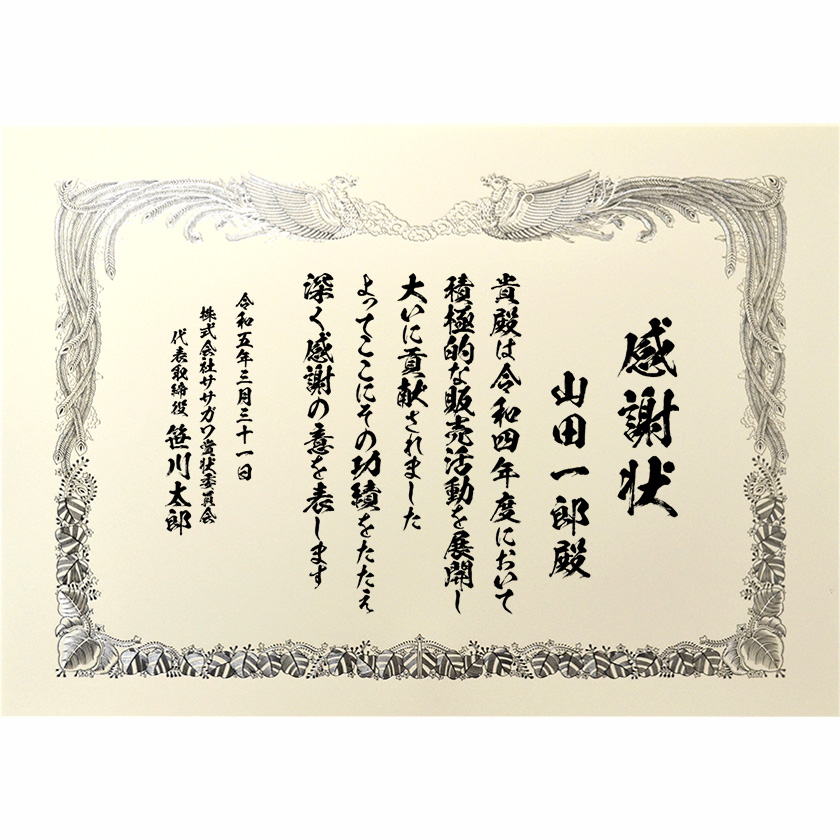 感謝状
山田一郎殿
貴殿は令和四年度において
積極的な販売活動を展開し
大いに貢献されました
よってここにその功績をたたえ
深く感謝の意を表します
令和五年三月三十一日
株式会社ササガワ賞状委員会
代表取締役 笹川太郎